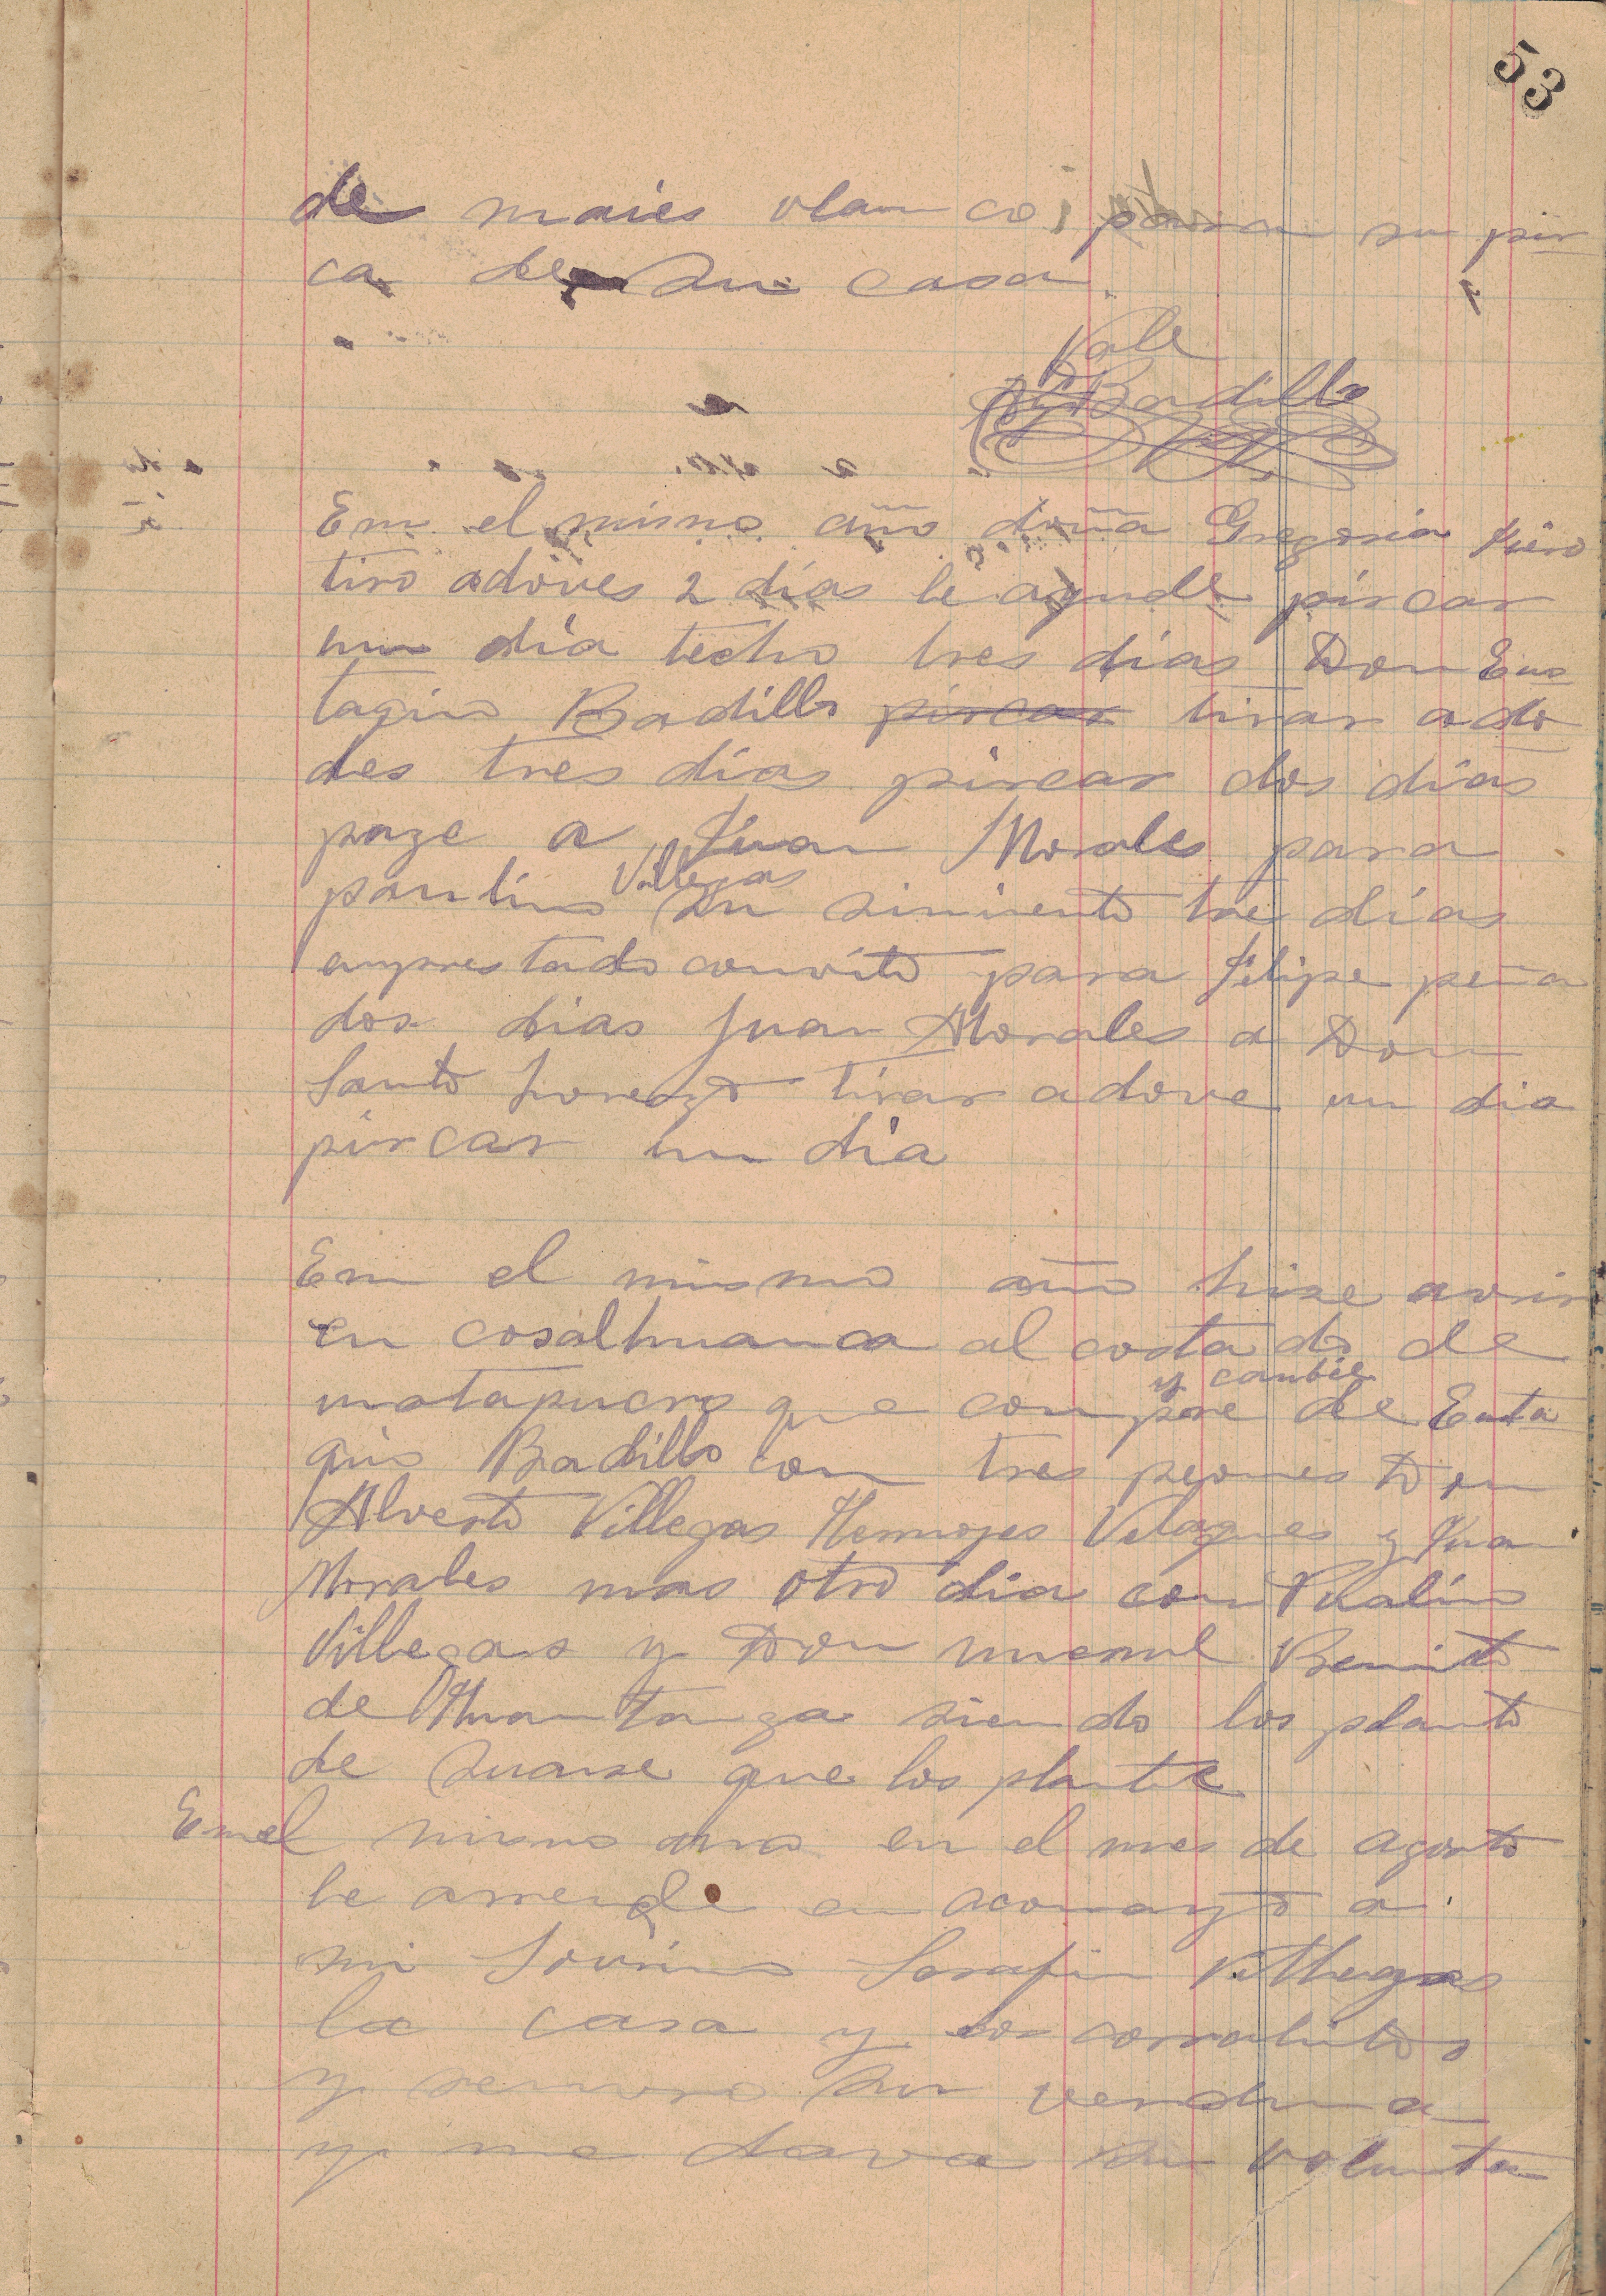 53
de maies vlanco para su pir
ca de su casa.
Vale
Badillo
En el mismo año doña Gregoria
tiro adoves 2 dias le ayude pircar
un dia techo tres dias Don Eus
taqio Badillo pircar tirar ado
des tres dias pircar dos dias
page a Juan Morales para
paulino Villegas su simiento tres dias
emprestado convito para Felipe peña
dos dias Juan Morales a Don
Santo Lorenzo tirar adove un dia
pircar un dia
En el mismo año hise avrir
en cosalhuanca al costado de
matapucro que compre y cambie de Eusta
qio Badillo con tres peones Don
Alverto Villegas Hermojes Velasques y Juan
Morales mas otro dia con
Villegas y Don Benito
de Huamantanga siendo los planto
de que los plante
En el mismo año en el mes de agosto
le arrende en acomayo a
mi Sovrino Serafin Villegas
la casa y los corralitos
y su
y me dava su volunta